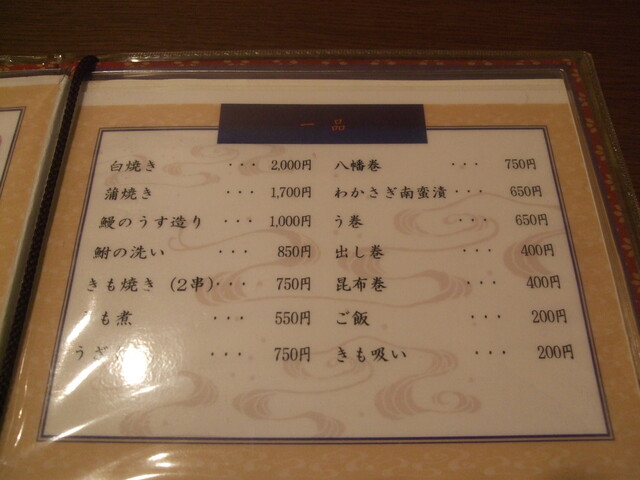 一品
白焼き ・・・ 2,000円
蒲焼き ・・・ 1,700円
鰻のうす造り ・・・ 1,000円
鮒の洗い ・・・ 850円
きも焼き（2串）・・・ 750円
も煮 ・・・ 550円
うざ ・・・ 750円
八幡巻 ・・・ 750円
わかさぎ南蛮漬 ・・・ 650円
う巻 ・・・ 650円
出し巻 ・・・ 400円
昆布巻 ・・・ 400円
ご飯 ・・・ 200円
きも吸い ・・・ 200円